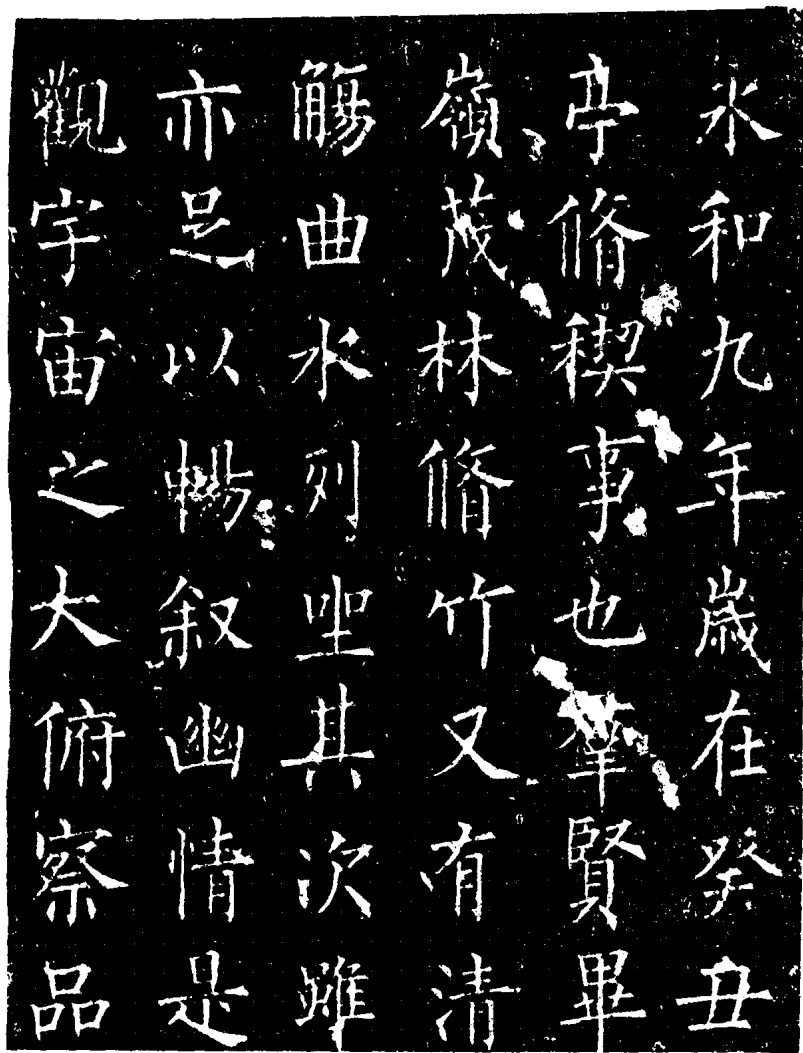 永和九年歲在癸丑
亭脩稧事也羣賢畢
嶺茂林脩竹又有清
觴曲水列坐其次雖
亦足以暢叙幽情是
觀宇宙之大俯察品